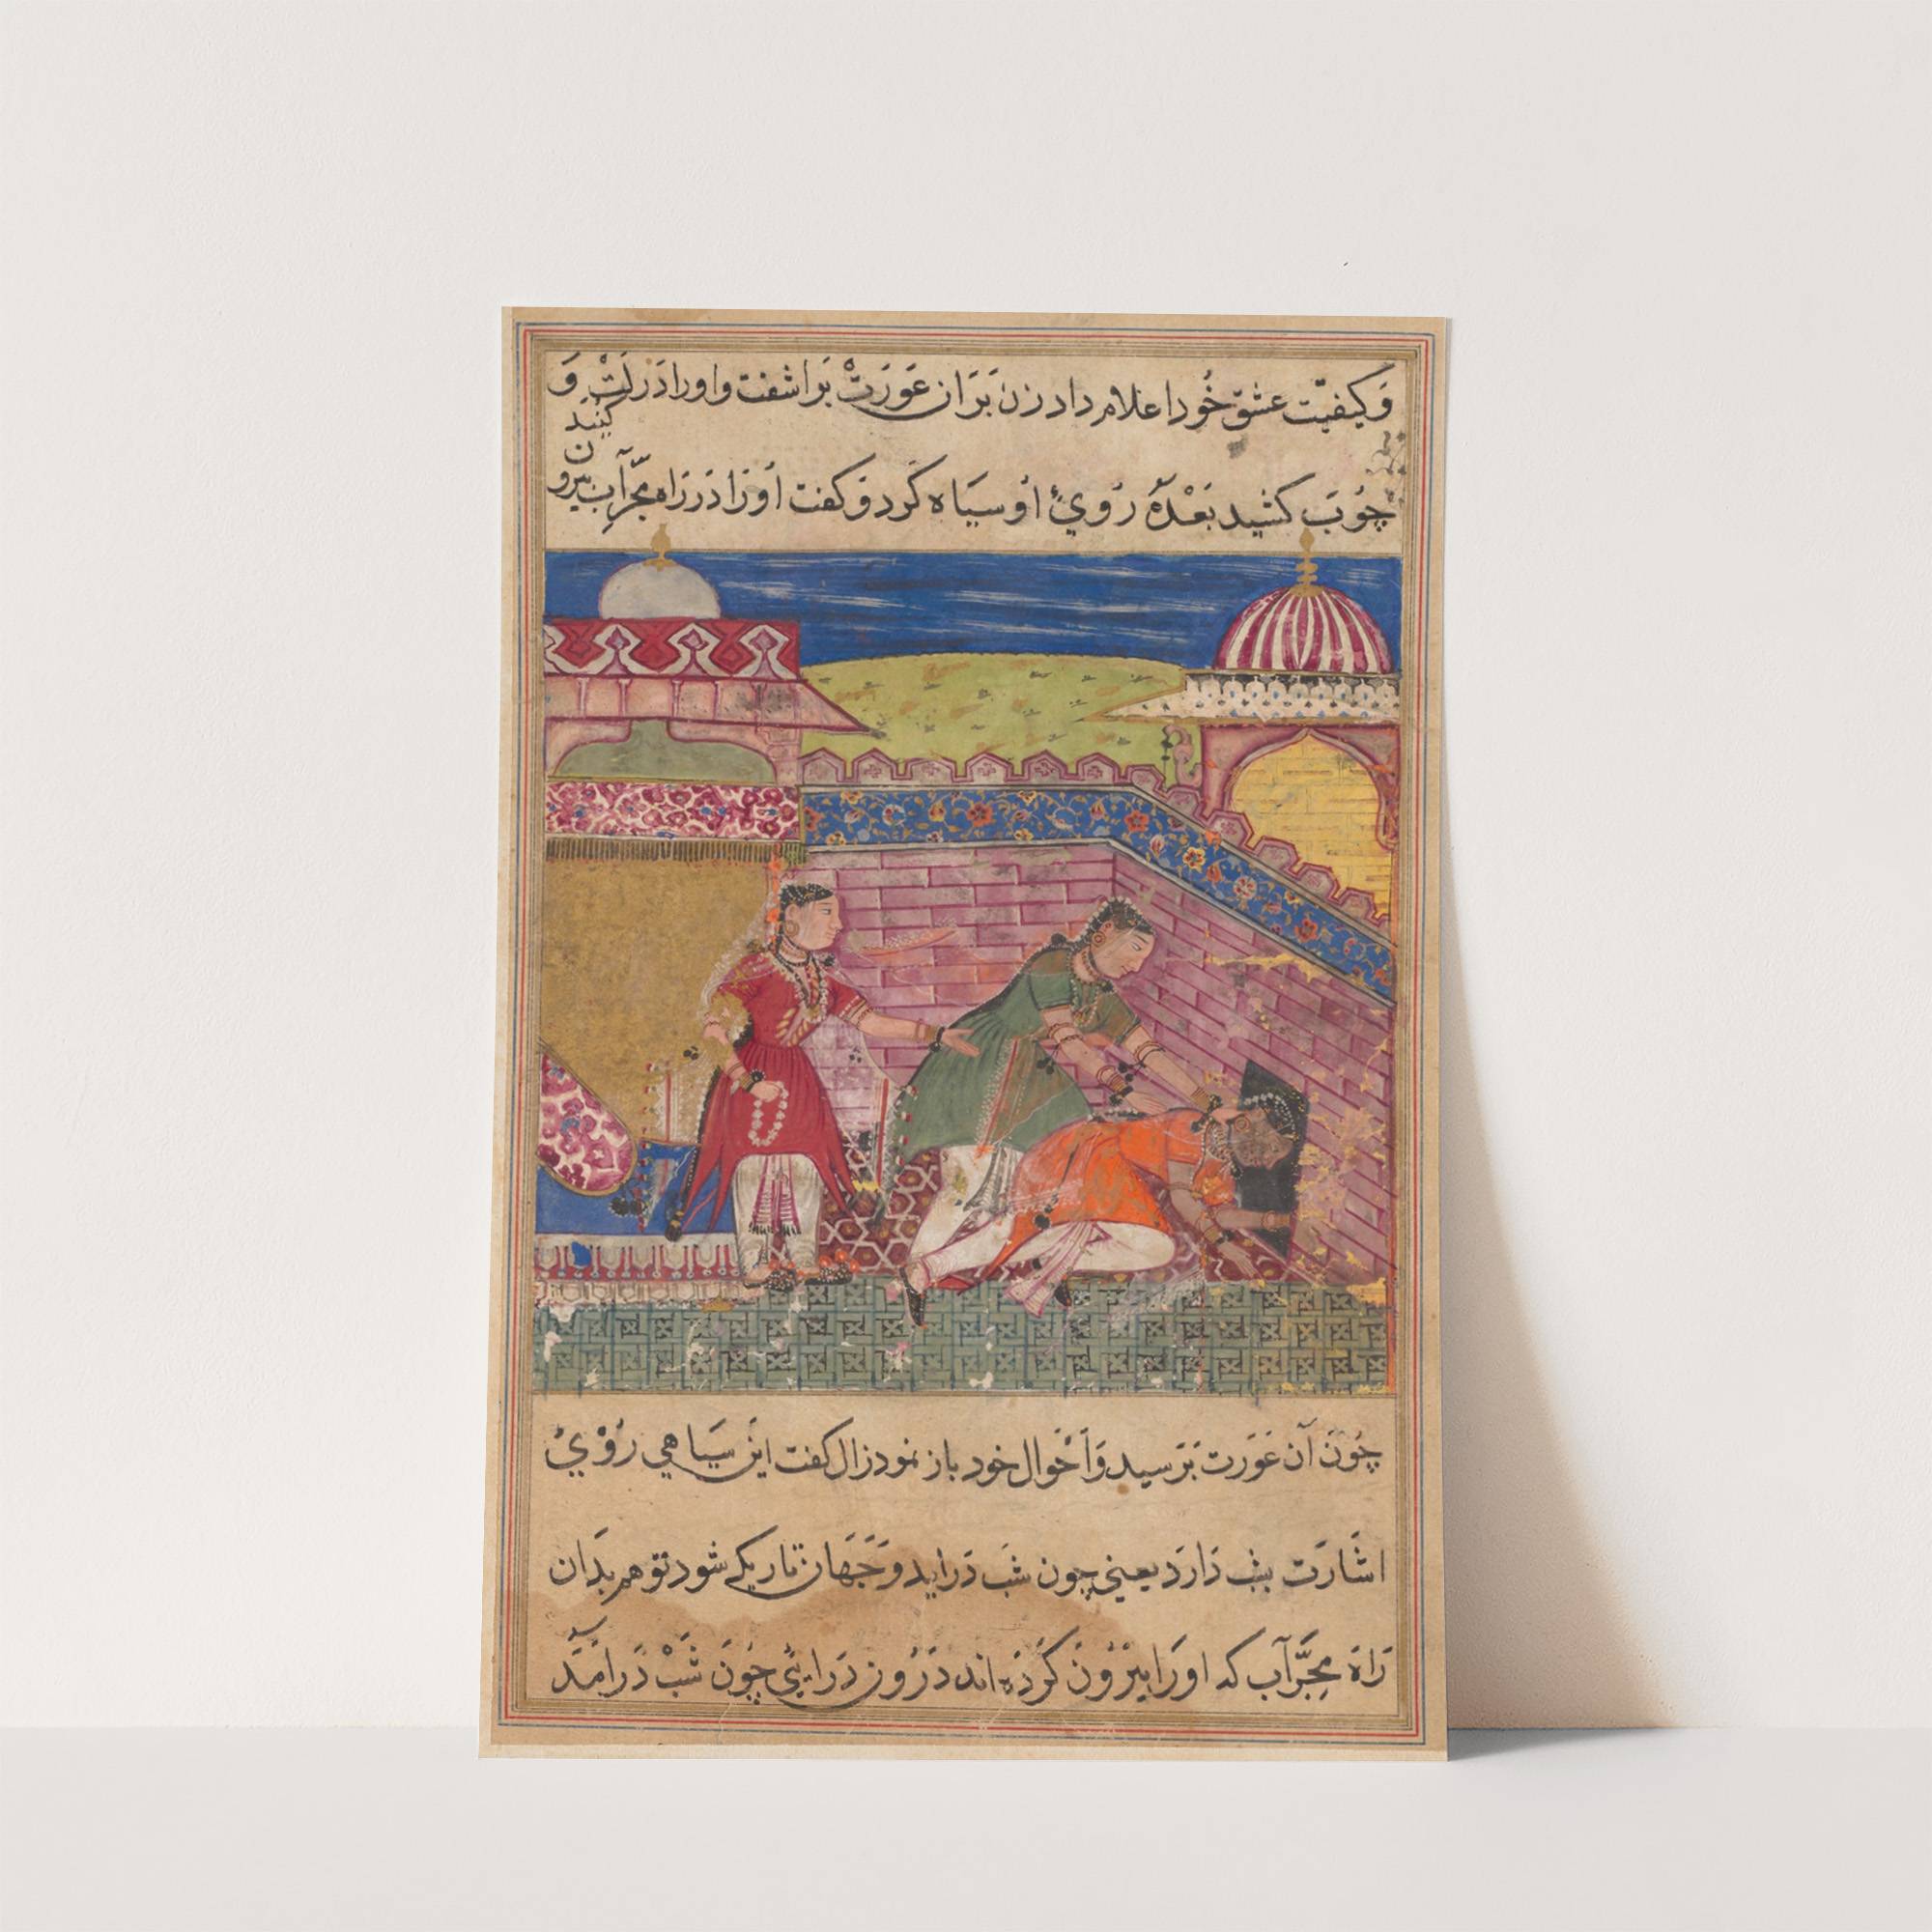 وَ کیفیّت عشق خُود اعلام داد زن بَرَان عَورَتْ بَراشفت و اورا دَر لَتْ وَ
چُوبَ کشید بَعْدَهُ رُویْ اُو سیَاه کَرد وَ کفت اُورَا دَر رَاه مجرّآب بیرون کنند
چُونَ آن عَورَت بَرَسید وَ اَحْوال خود باز نمود زال کفت این سیَاهی رُوْیْ
اشَارَت بشَب دَارَد یعنی چون شَب دَراید وَ جَهَان تاریک شود تو هم بدَان
رَاه مجرَّآب که اورَا بیْرُونْ کَردَه اند دَرُون دَرایی چُونَ شَبْ دَرامَد